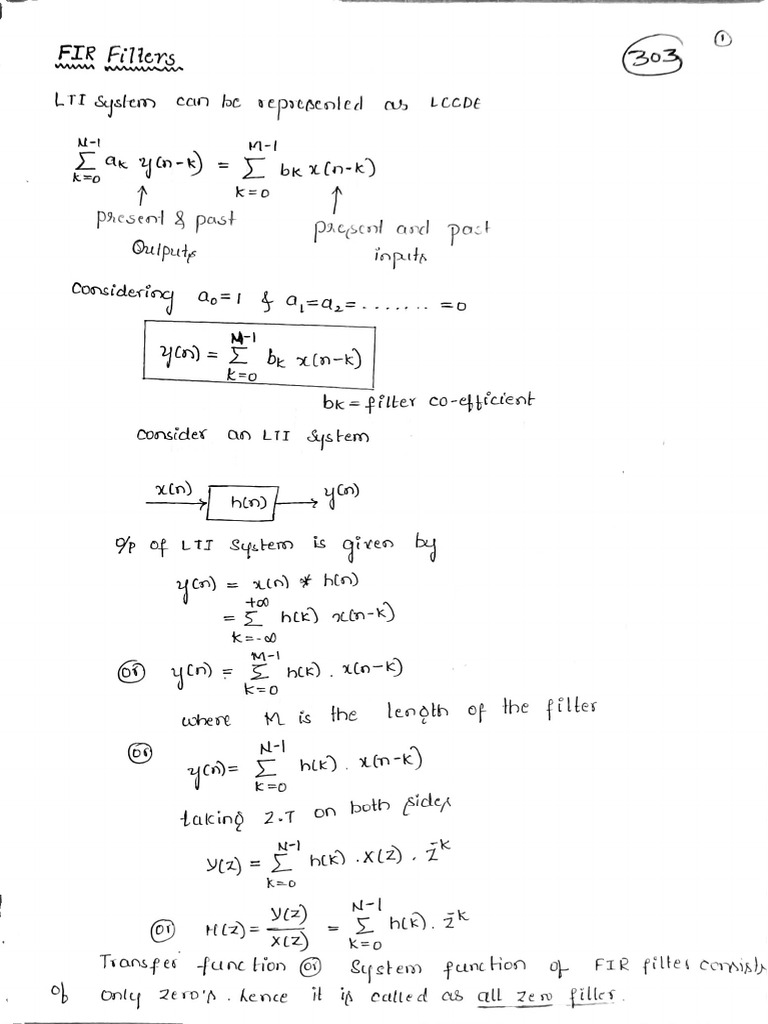 FIR Filters
303
1
LTI System can be represented as LCCDE
N-1 Σ k=0 ak y(n-k) = M-1 Σ k=0 bk x(n-k)
↑ ↑
present & past present and past
Outputs inputs
Considering a0=1 & a1=a2=........=0
y(n) = M-1 Σ k=0 bk x(n-k)
bk = filter co-efficient
Consider an LTI System
x(n) → h(n) → y(n)
o/p of LTI System is given by
y(n) = x(n) * h(n)
= +∞ Σ k=-∞ h(k) x(n-k)
(or) y(n) = M-1 Σ k=0 h(k) . x(n-k)
where M is the length of the filter
(or) y(n) = N-1 Σ k=0 h(k) . x(n-k)
taking Z.T on both sides
Y(Z) = N-1 Σ k=0 h(k) . X(Z) . Z^-k
(or) H(Z) = Y(Z)/X(Z) = N-1 Σ k=0 h(k) . Z^-k
Transfer function (or) System function of FIR filter consists
of only zero's. hence it is called as all zero filter.